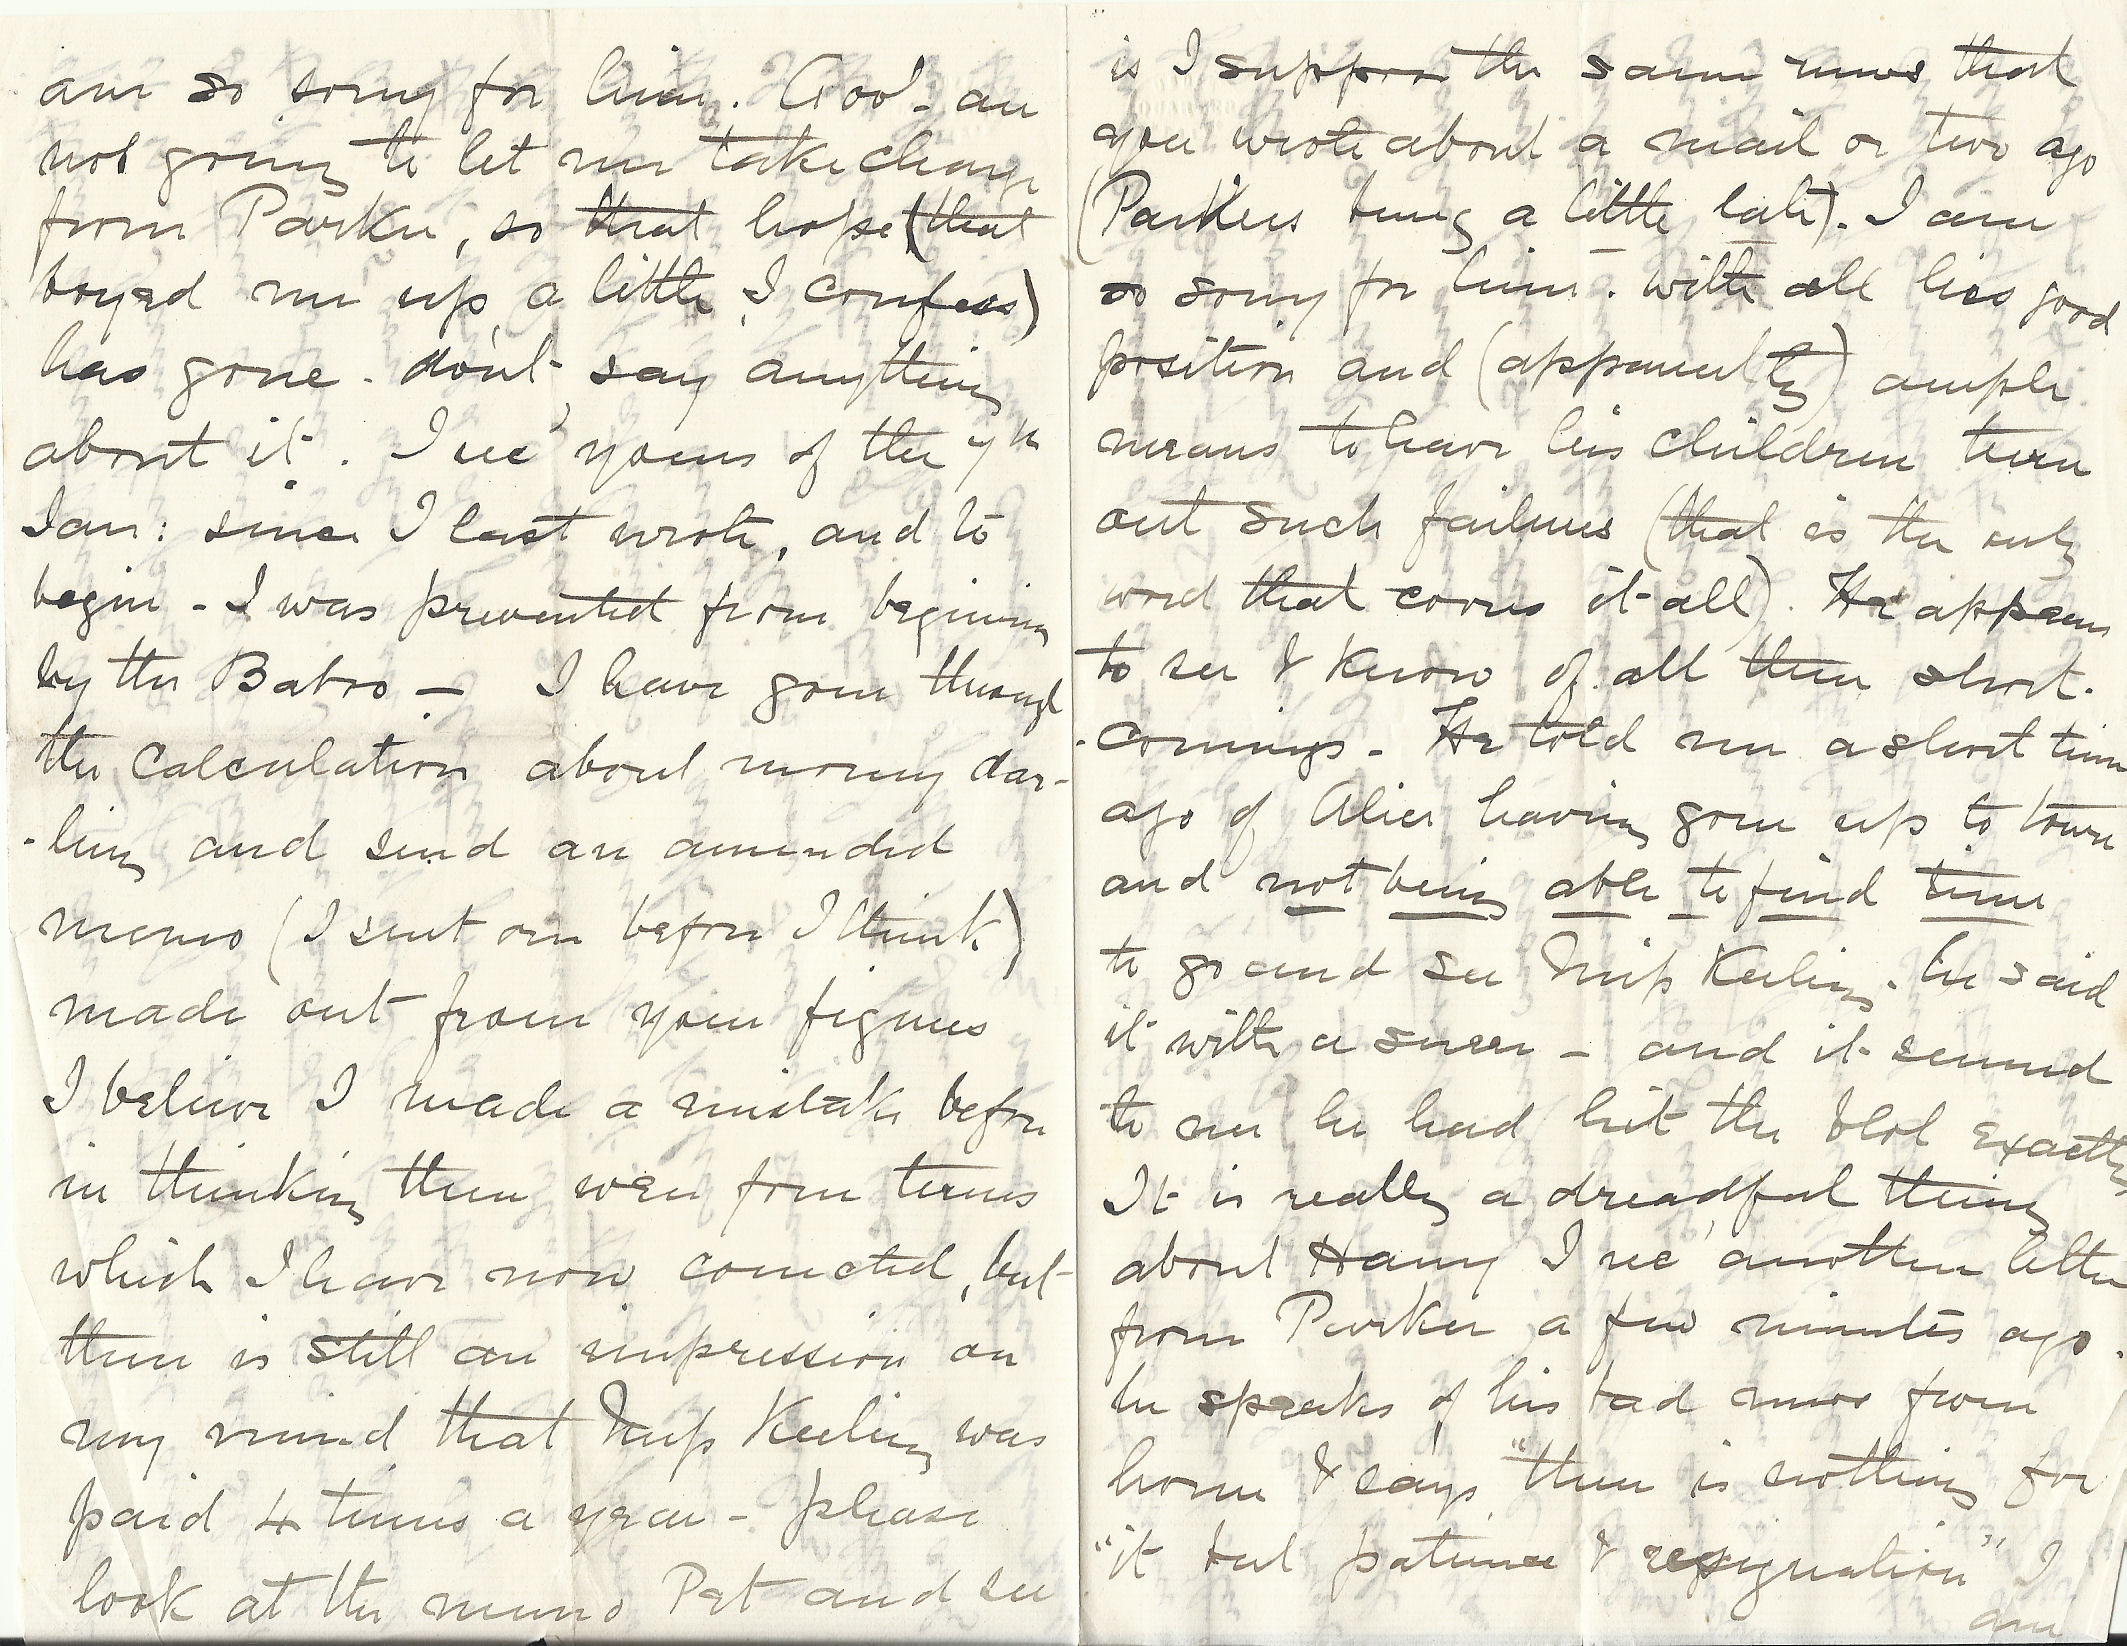 am so sorry for him. Govt. are
not going to let me take charge
from Parker, so that hope (that
boyed me up a little, I confess)
has gone. don't say anything
about it. I rec'd yours of the 7th
Jan: since I last wrote, and to
begin - I was prevented from begining
by the Babos - I have gone through
the calculation about money dar-
-ling and send an amended
memo (I sent one before I think)
made out from your figures
I believe I made a mistake before
in thinking there were four terms
which I have now corrected, but
there is still an impression on
my mind that Miss Keeling was
paid 4 times a year - please
look at the memo Pet and see
is I suppose the same news that
you wrote about a mail or two ago
(Parkers being a little late). I am
so sorry for him. with all his good
position and (apparently) ample
means to have his children turn
out such failures (that is the only
word that covers it all). He appears
to see & know of all their short-
-comings. He told me a short time
ago of Alice having gone up to town
and not being able to find time
to go and see Miss Keeling. he said
it with a sneer - and it seemed
to me he had hit the blot exactly
It is really a dreadful thing
about Harry I rec'd another letter
from Parker a few minutes ago.
he speaks of his bad news from
home & says "there is nothing for
"it but patience & resignation" I
am